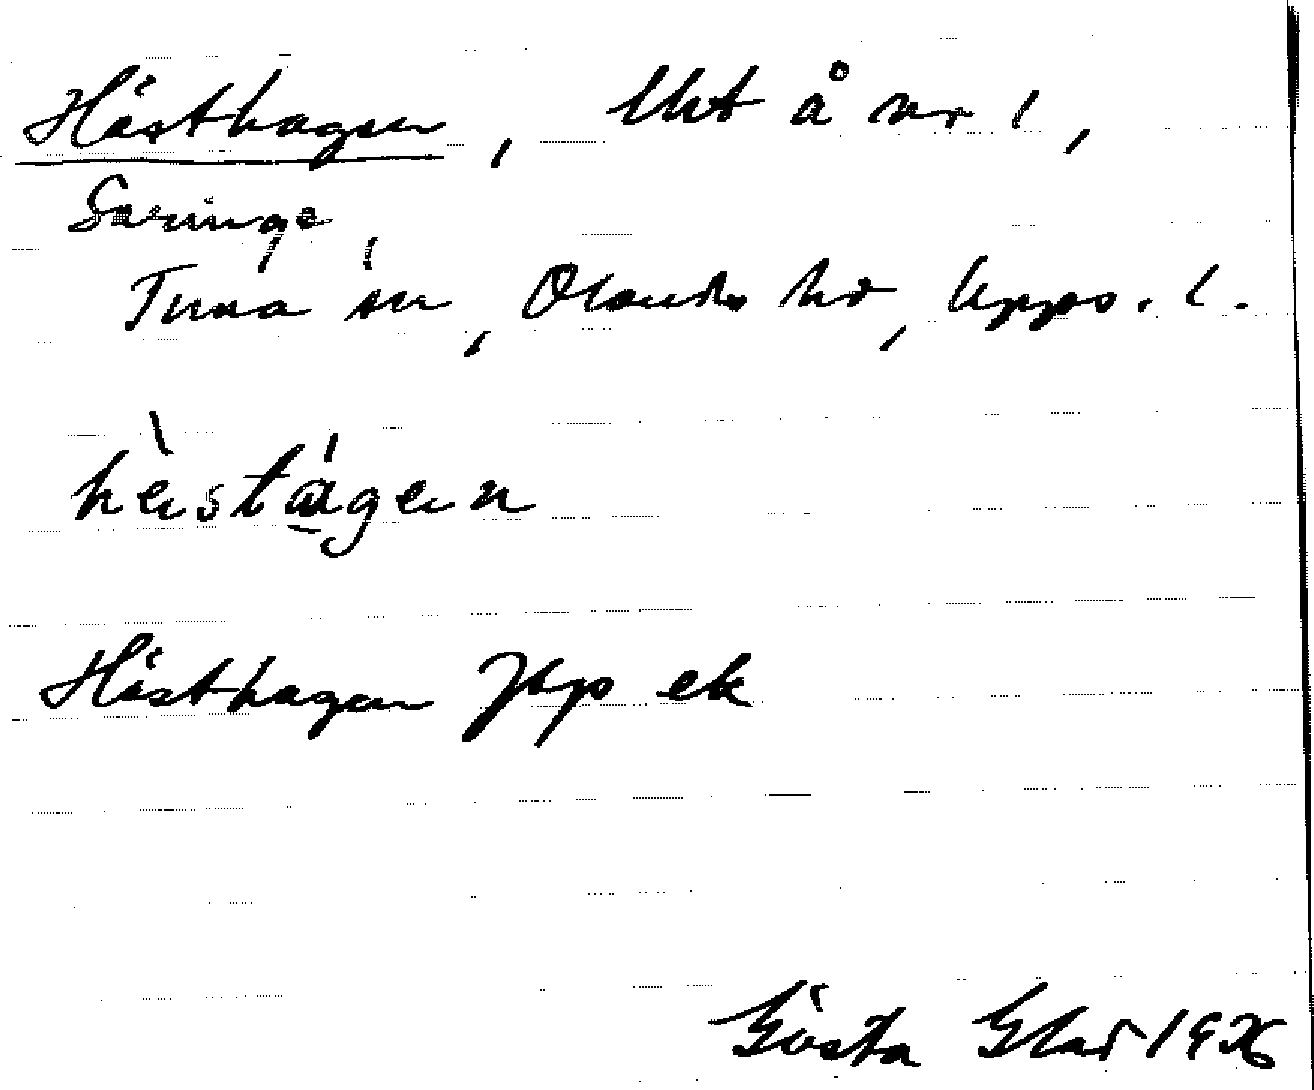 Hästhagen, Uht å nr 1,
Saringe,
Tuna sn, Olands hd, Upps. l.
hästagen
Hästhagen Jkp ek
Gösta